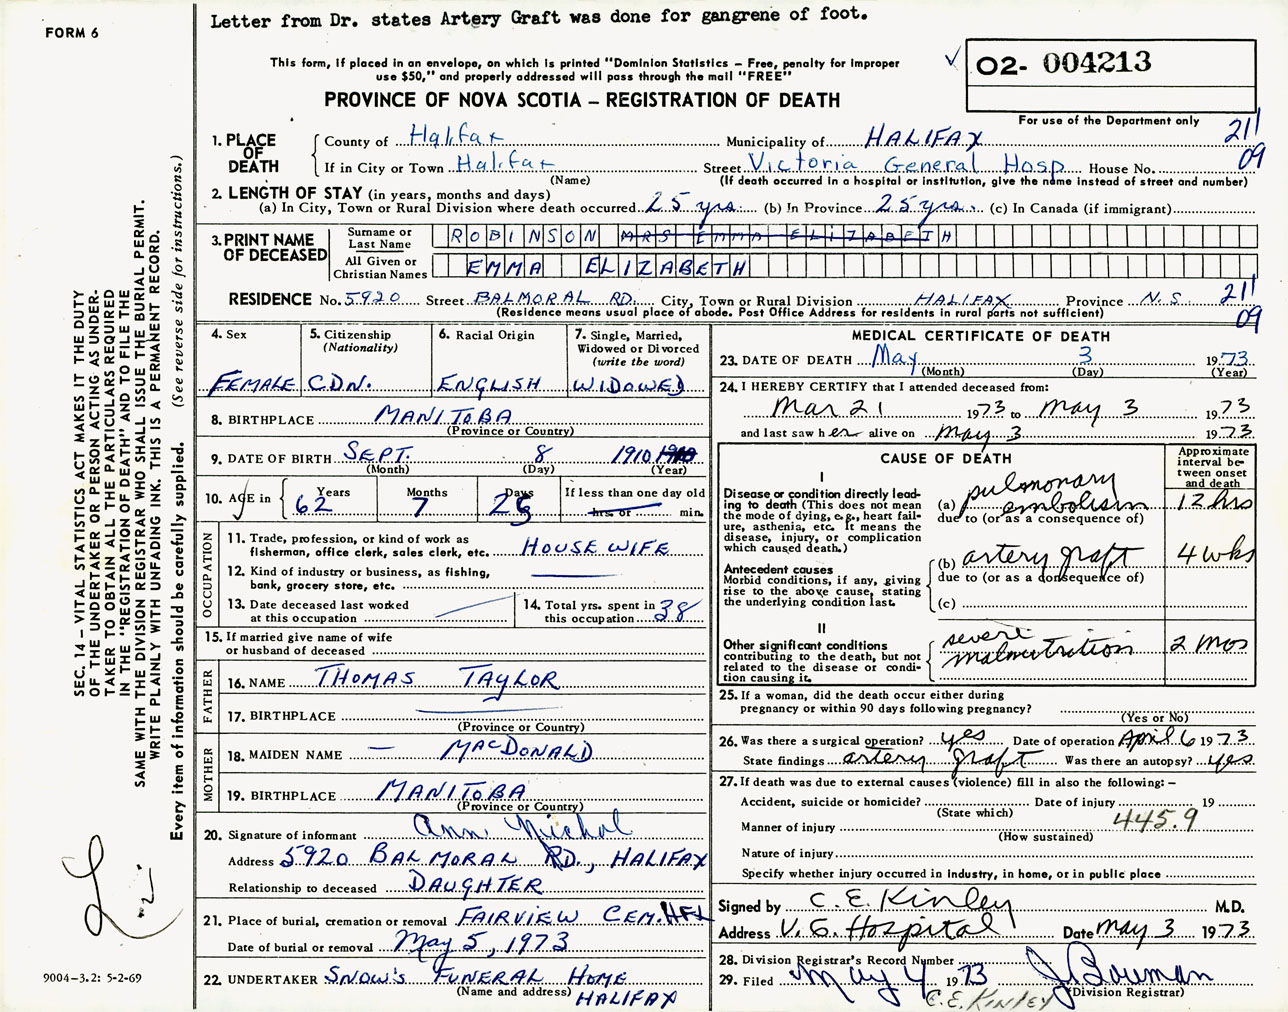 Letter from Dr. states Artery Graft was done for gangrene of foot.
FORM 6
This form, if placed in an envelope, on which is printed "Dominion Statistics – Free, penalty for improper
use $50," and properly addressed will pass through the mail "FREE"
02- 004213
PROVINCE OF NOVA SCOTIA – REGISTRATION OF DEATH
For use of the Department only
211
09
1. PLACE OF DEATH
County of Halifax Municipality of HALIFAX
If in City or Town Halifax Street Victoria General Hosp House No.
(Name) (If death occurred in a hospital or institution, give the name instead of street and number)
2. LENGTH OF STAY (in years, months and days)
(a) In City, Town or Rural Division where death occurred 25 yrs. (b) In Province 25 yrs. (c) In Canada (if immigrant)
3. PRINT NAME OF DECEASED
Surname or Last Name ROBINSON MRS EMMA ELIZABETH
All Given or Christian Names EMMA ELIZABETH
RESIDENCE No. 5920 Street BALMORAL RD. City, Town or Rural Division HALIFAX Province N.S
211
09
(Residence means usual place of abode. Post Office Address for residents in rural parts not sufficient)
4. Sex FEMALE
5. Citizenship (Nationality) CDN.
6. Racial Origin ENGLISH
7. Single, Married, Widowed or Divorced (write the word) WIDOWED
8. BIRTHPLACE MANITOBA
(Province or Country)
9. DATE OF BIRTH SEPT. 8 1910
(Month) (Day) (Year)
10. AGE in Years 62 Months 7 Days If less than one day old hrs. or min.
OCCUPATION
11. Trade, profession, or kind of work as
fisherman, office clerk, sales clerk, etc. HOUSEWIFE
12. Kind of industry or business, as fishing,
bank, grocery store, etc.
13. Date deceased last worked
at this occupation
14. Total yrs. spent in
this occupation 38
15. If married give name of wife
or husband of deceased
FATHER
16. NAME THOMAS TAYLOR
17. BIRTHPLACE
(Province or Country)
MOTHER
18. MAIDEN NAME — MACDONALD
19. BIRTHPLACE MANITOBA
(Province or Country)
20. Signature of informant Ann Nichol
Address 5920 BALMORAL RD., HALIFAX
Relationship to deceased DAUGHTER
21. Place of burial, cremation or removal FAIRVIEW CEM. HFX
Date of burial or removal May 5, 1973
22. UNDERTAKER SNOW'S FUNERAL HOME
(Name and address) HALIFAX
MEDICAL CERTIFICATE OF DEATH
23. DATE OF DEATH May 3 1973
(Month) (Day) (Year)
24. I HEREBY CERTIFY that I attended deceased from:
Mar 21 1973 to May 3 1973
and last saw her alive on May 3 1973
CAUSE OF DEATH
Approximate interval between onset and death
I
Disease or condition directly lead-
ing to death (This does not mean
the mode of dying, e.g., heart fail-
ure, asthenia, etc. It means the
disease, injury, or complication
which caused death.)
(a) pulmonary embolism 12 hrs
due to (or as a consequence of)
Antecedent causes
Morbid conditions, if any, giving
rise to the above cause, stating
the underlying condition last.
(b) artery graft 4 wks
due to (or as a consequence of)
(c)
II
Other significant conditions
contributing to the death, but not
related to the disease or condi-
tion causing it.
severe malnutrition 2 mos
25. If a woman, did the death occur either during
pregnancy or within 90 days following pregnancy?
(Yes or No)
26. Was there a surgical operation? yes Date of operation April 6 1973
State findings artery graft Was there an autopsy? yes
27. If death was due to external causes (violence) fill in also the following: –
Accident, suicide or homicide? Date of injury 19
(State which)
Manner of injury 445.9
(How sustained)
Nature of injury
Specify whether injury occurred in industry, in home, or in public place
Signed by C. E. Kinley M.D.
Address V. G. Hospital Date May 3 1973
28. Division Registrar's Record Number
29. Filed May 4 1973 J Bowman
(Division Registrar)
C.E. KINLEY
SEC. 14 – VITAL STATISTICS ACT MAKES IT THE DUTY
OF THE UNDERTAKER OR PERSON ACTING AS UNDER-
TAKER TO OBTAIN ALL THE PARTICULARS REQUIRED
IN THE "REGISTRATION OF DEATH" AND TO FILE THE
SAME WITH THE DIVISION REGISTRAR WHO SHALL ISSUE THE BURIAL PERMIT.
WRITE PLAINLY WITH UNFADING INK. THIS IS A PERMANENT RECORD.
Every item of information should be carefully supplied. (See reverse side for instructions.)
9004–3.2: 5-2-69